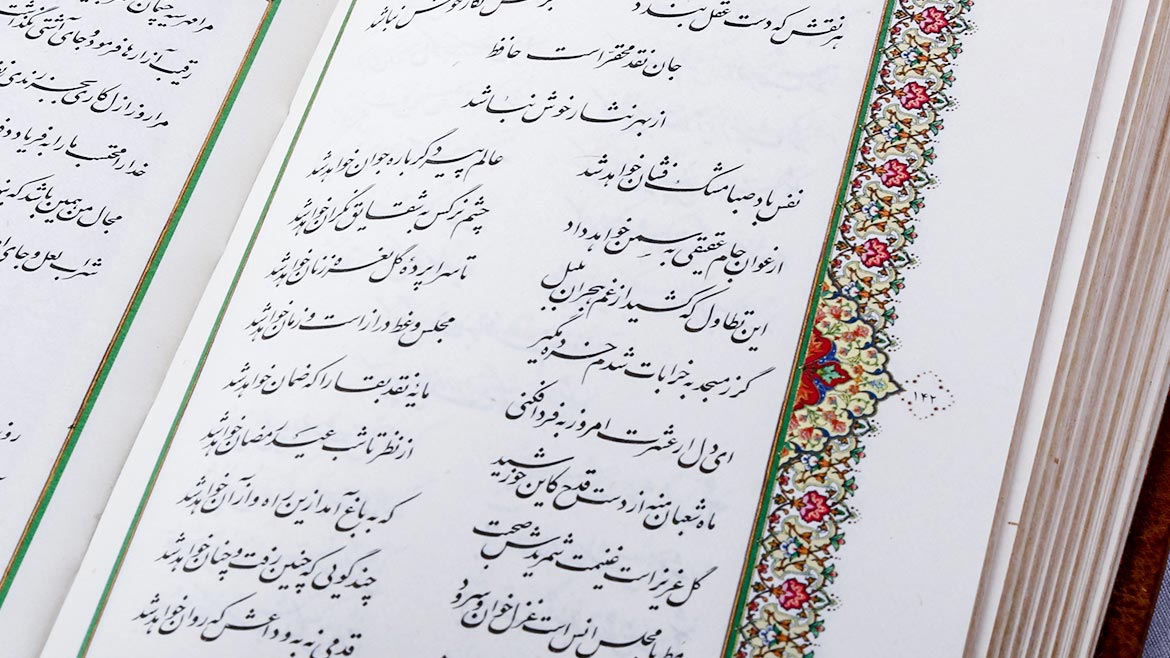 هر نقش که دست عقل بندد
نگار خوش نباشد
جان نقد محقر است حافظ
از بهر نثار خوش نباشد
نفس باد صبا مشک فشان خواهد شد عالم پیر دگرباره جوان خواهد شد
ارغوان جام عقیقی به سمن خواهد داد چشم نرگس به شقایق نگران خواهد شد
این تطاول که کشید از غم هجران بلبل تا سراپردهٔ گل نعره زنان خواهد شد
گر ز مسجد به خرابات شدم خرده مگیر مجلس وعظ دراز است و زمان خواهد شد
ای دل ار عشرت امروز به فردا فکنی مایهٔ نقد بقا را که ضمان خواهد شد
ماه شعبان منه از دست قدح کاین خورشید از نظر تا شب عید رمضان خواهد شد
گل عزیز است غنیمت شمریدش صحبت که به باغ آمد ازین راه و از آن خواهد شد
مطربا مجلس انس است غزل خوان و سرود چند گویی که چنین رفت و چنان خواهد شد
قدمی نه به وداعش که روان خواهد شد
۱۴۲
رقیب آزارها فرمود و جای آشتی نگذاشت
مرا روز ازل کاری بجز رندی
خدا را محتسب ما را به فریاد و دف
مجال من همین باشد که
شراب لعل و جای